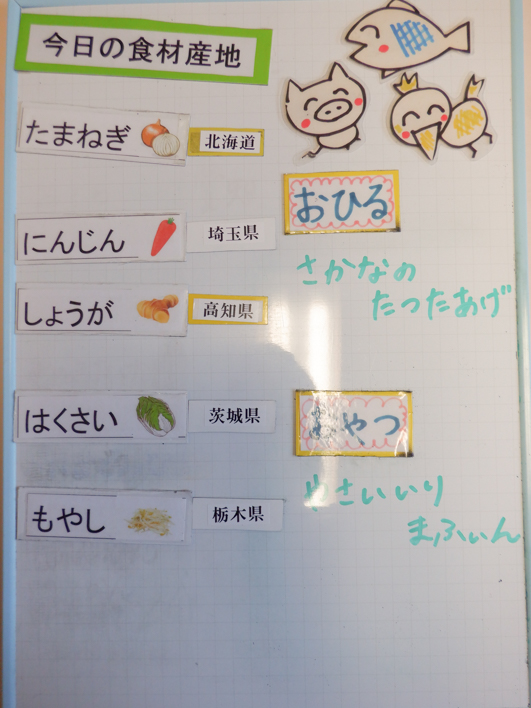 今日の食材産地
たまねぎ 北海道
にんじん 埼玉県
しょうが 高知県
はくさい 茨城県
もやし 栃木県
おひる
さかなの
たつたあげ
おやつ
やさいいり
まふぃん